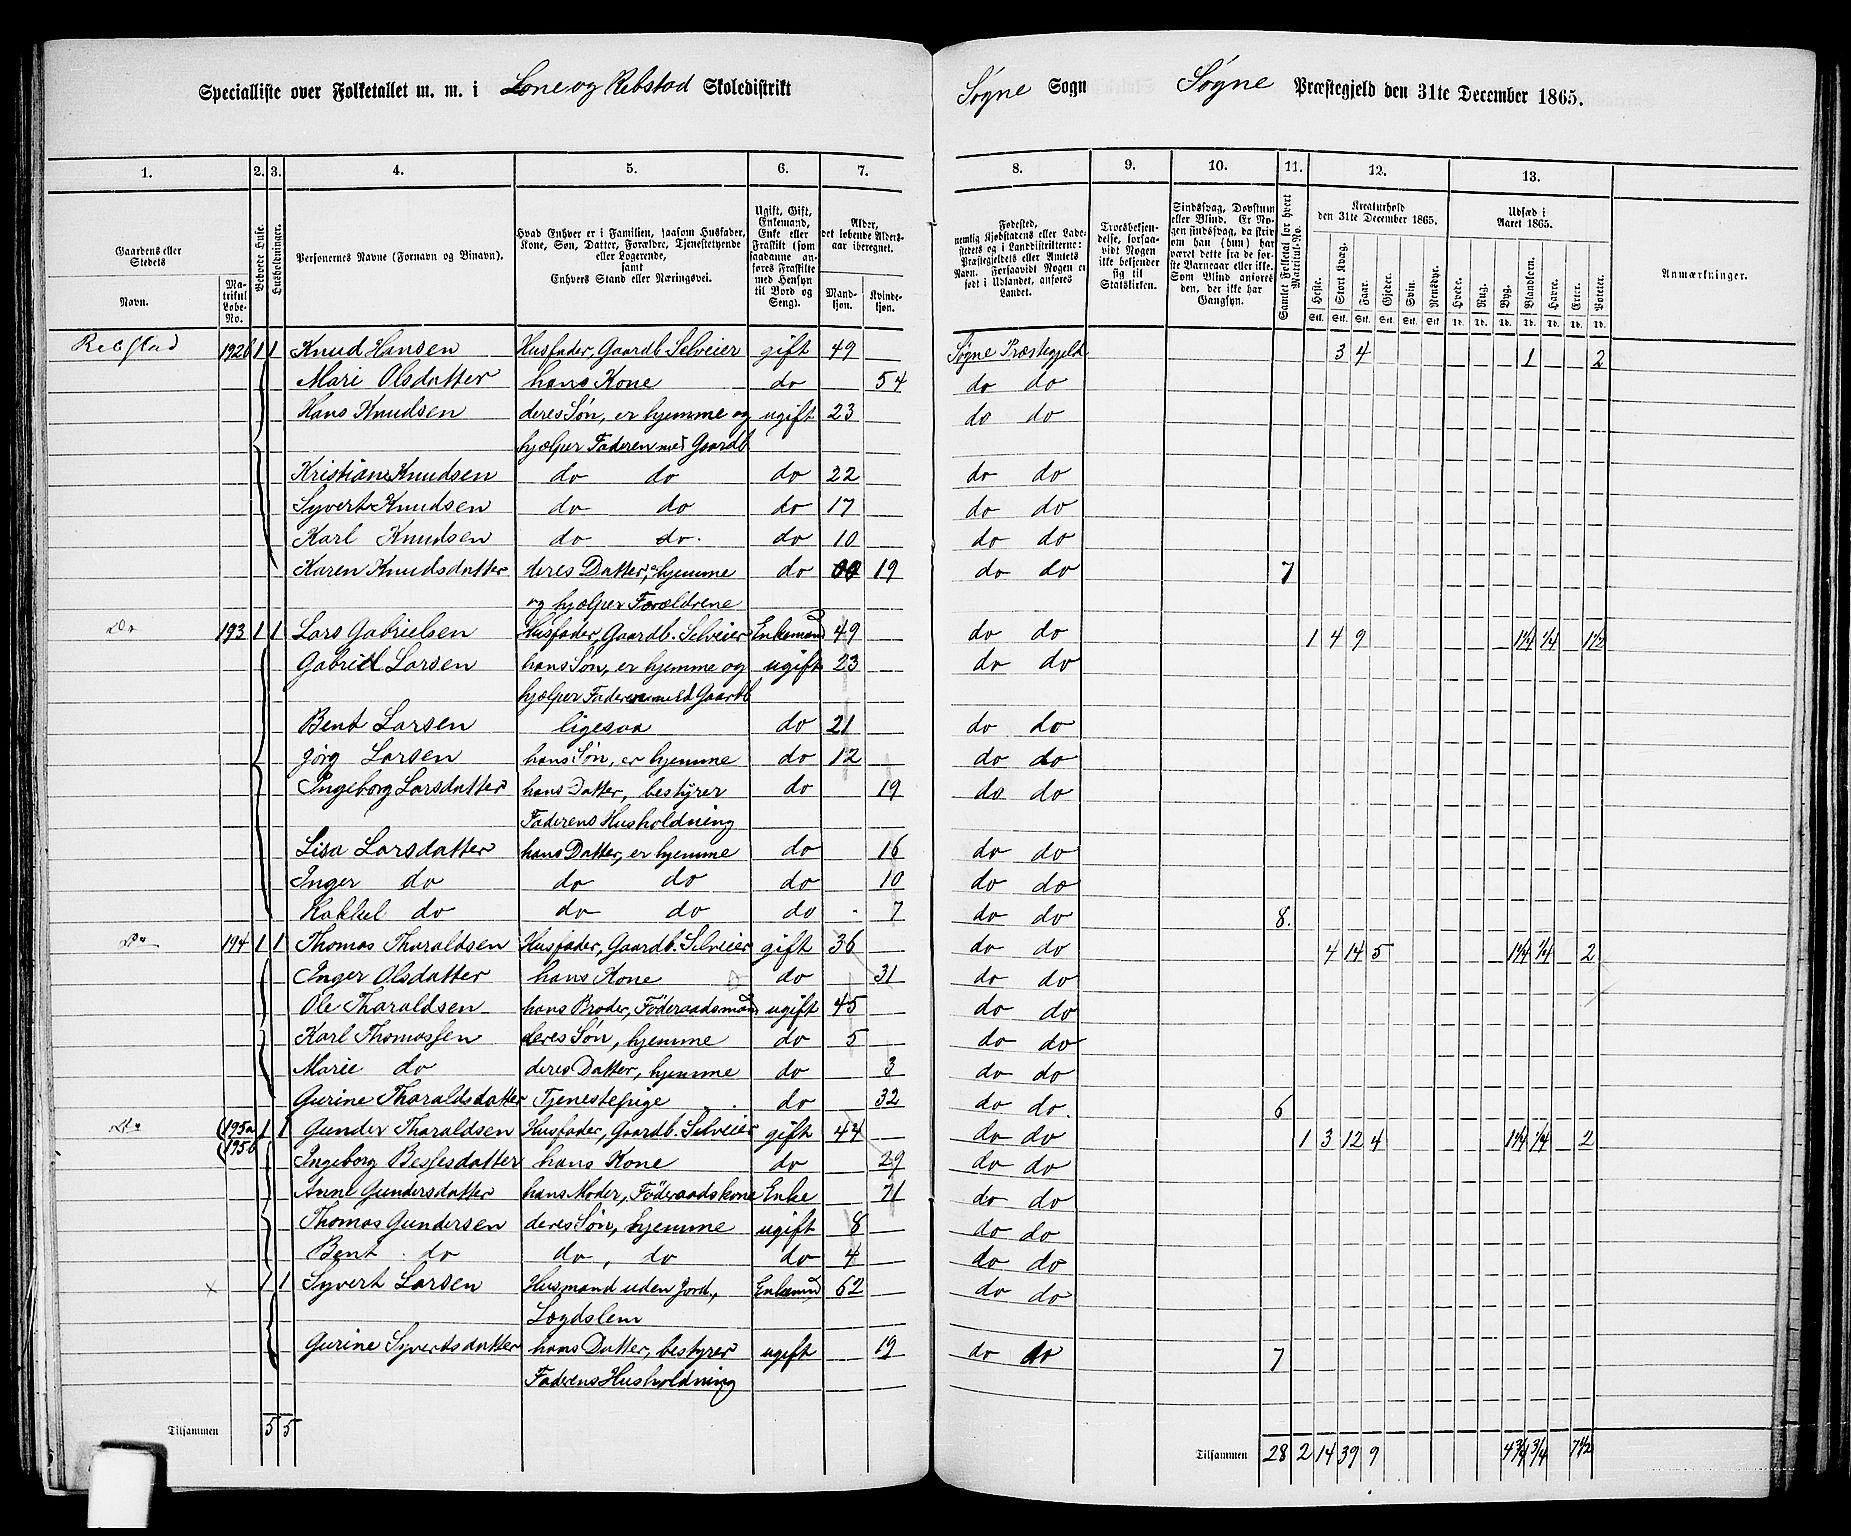 Specialliste over Folketallet m. m. i Lone og Rebstad Skoledistrikt
Søgne Sogn Søgne Præstegjeld den 31te December 1865.
1. 2. 3. 4. 5. 6. 7. 8. 9. 10. 11. 12. 13.
Gaardens eller Stedets Navn. Matrikul Løbe-No. Beboede Huse. Husholdninger. Personernes Navne (Fornavn og Binavn).
Hvad Enhver er i Familien, saasom Husfader, Kone, Søn, Datter, Forældre, Tjenestetyende eller Logerende, samt Enhvers Stand eller Næringsvei.
Ugift, Gift, Enkemand, Enke eller Fraskilt (som saadanne anføres Fraskilte med Hensyn til Bord og Seng).
Alder, det løbende Aldersaar iberegnet. Mandkjøn. Kvindekjøn.
Fødested, nemlig Kjøbstadens eller Ladestedets og i Landdistrikterne: Præstegjeldets eller Amtets Navn. Forsaavidt Nogen er født i Udlandet, anføres Landet.
Troesbekjendelse, forsaavidt Nogen ikke bekjender sig til Statskirken.
Sindssvag, Døvstum eller Blind. Er Nogen sindssvag, da skrives om han (hun) har været dette fra de første Barneaar eller ikke. Som Blind anføres den, der ikke har Gangsyn.
Samlet Folketal for hvert Matrikul-No.
Kreaturhold den 31te December 1865. Heste. Stort Kvæg. Faar. Gjeder. Svin. Rensdyr.
Udsæd i Aaret 1865. Hvede. Rug. Byg. Blandkorn. Havre. Erter. Poteter.
Anmærkninger.
Rebstad 192b 1 1 Knud Hansen Husfader, Gaardb. Selveier gift 49 Søgne Præstegjeld 3 4 1 2
Mari Olsdatter hans Kone do 54 do do
Hans Knudsen deres Søn, er hjemme og ugift 23 do do
hjælper Faderen med Gaardb
Kristian Knudsen do do do 22 do do
Syvert Knudsen do do do 17 do do
Karl Knudsen do do. do 10 do do
Karen Knudsdatter deres Datter, hjemme do 19 do do 7
og hjælper Forældrene
Do 193 1 1 Lars Gabrielsen Husfader, Gaardb. Selveier Enkemand 49 do do 1 4 9 1 1/4 1/4 1 1/2
Gabriel Larsen hans Søn, er hjemme og ugift 23 do do
hjælper Faderen med Gaardb
Bent Larsen ligesaa do 21 do do
Jörg Larsen hans Søn, er hjemme do 12 do do
Ingeborg Larsdatter hans Datter, bestyrer do 19 do do
Faderens Husholdning
Lisa Larsdatter hans Datter, er hjemme do 16 do do
Inger do do do do 10 do do
Rakkel do do do do 7 do do 8.
Do 194 1 1 Thomas Tharaldsen Husfader, Gaardb. Selveier gift 36 do do 4 14 5 1 1/4 1/4 2
Inger Olsdatter hans Kone do 31 do do
Ole Tharaldsen hans Broder, Föderaadsmand ugift 45 do do
Karl Thomassen deres Søn, hjemme do 5 do do
Marie do deres Datter, hjemme do 3 do do
Gurine Tharaldsdatter Tjenestepige do 32 do do. 6
Do 195a 1 1 Gunder Tharaldsen Husfader, Gaardb. Selveier gift 44 do do 1 3 12 4 1 1/4 1/4 2
195b Ingeborg Bessesdatter hans Kone do 29 do do
Anne Gundersdatter hans Moder, Föderaadskone Enke 71 do do
Thomas Gundersen deres Søn, hjemme ugift 8 do do
Bent do do, do do 4 do do
x 1 1 Syvert Larsen Husmand uden Jord, Enkemand 62 do do
Lægdslem
Gurine Syvertsdatter hans Datter, bestyrer ugift 19 do do 7
Faderens Husholdning
Tilsammen 5 5 Tilsammen 28 2 14 39 9 4 3/4 3/4 7 1/2